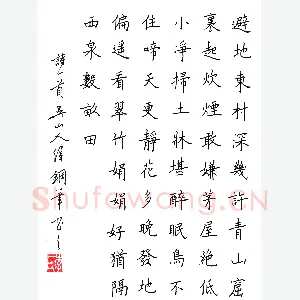 避地東村深幾許青山窟
裏起炊煙敢嫌茅屋絶低
小淨掃土牀堪醉眠鳥不
住啼天更靜花多晚發地
偏遥看翠竹娟娟好猶隔
西泉數畝田
Shufawang.CN